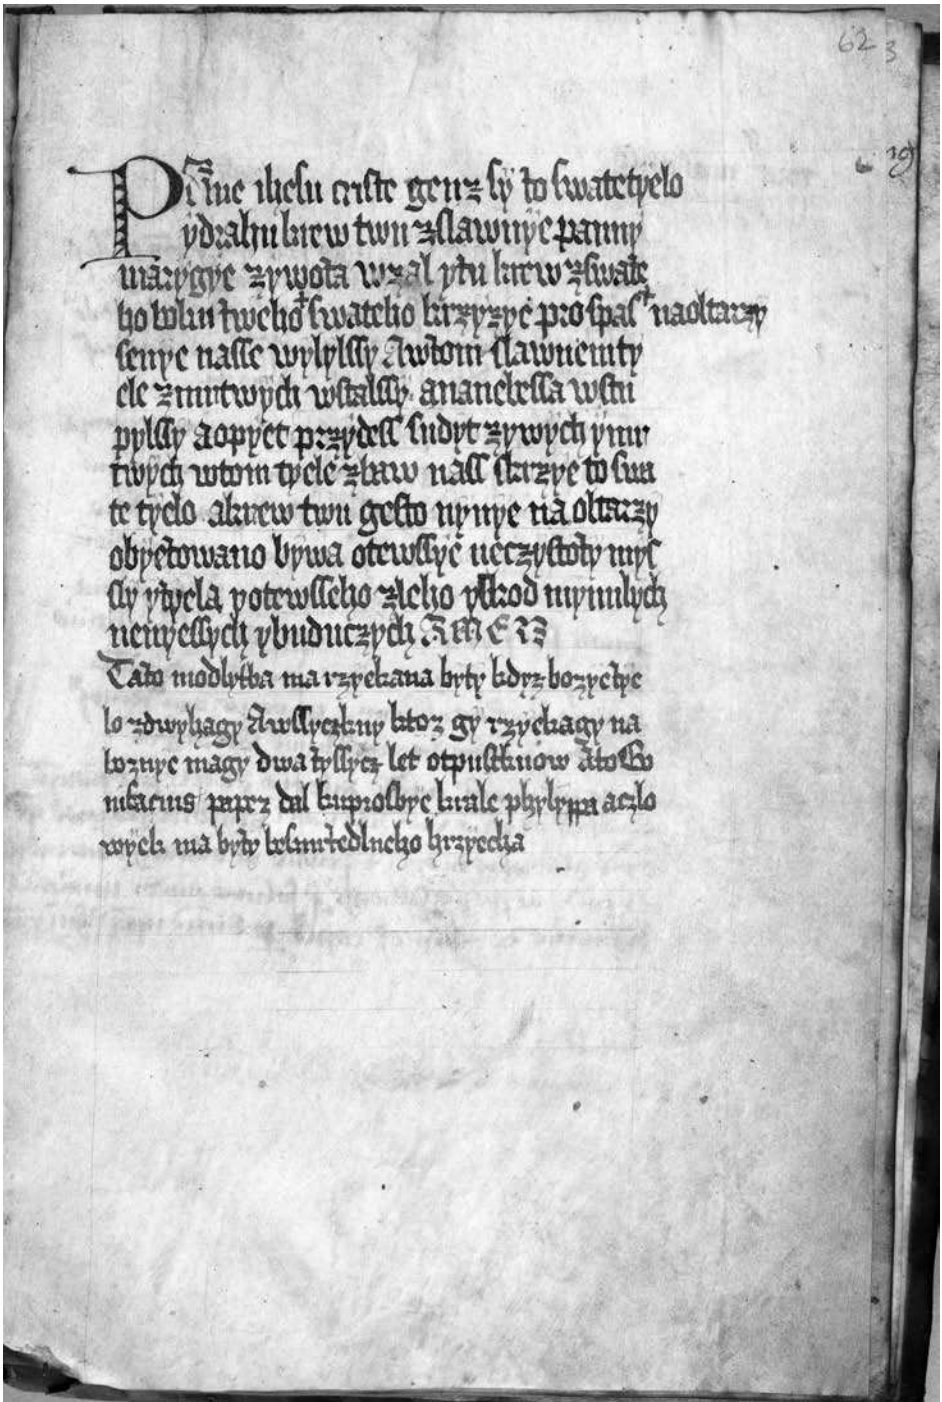 62 3
Pane ihesu criste genz sy to swatetyelo
ydrahu krew twu zslawnye panny
marygye zywota wzal ytu krew zswate
ho boku tweho swateho krzyzye pro spas naoltarzy
senye nasse wylylssy Awtom slawnemty
ele zmrtwych wstalssy ananebessa wstu
pylssy aopyet przydess sudyt zywych ymr
twych wtom tyele zbaw nass skrzye to swa
te tyelo akrew twu gesto nynye na oltarzy
obyetowano bywa otewssye neczystoty mys
sly ytyela yotewsseho zleho yskod mynulych
nenyessych ybuduczych AMEN
Tato modlytba ma rzyekana byty kdyz bozyetye
lo zdwyhagy Awssyczkny ktoz gy rzyekagy na
boznye magy dwa tyssycz let otpustkuow Ato Bo
nifacius papez dal kuprosbye krale phylyppa aczlo
wyek ma byty bessmrtedlneho hrzyecha